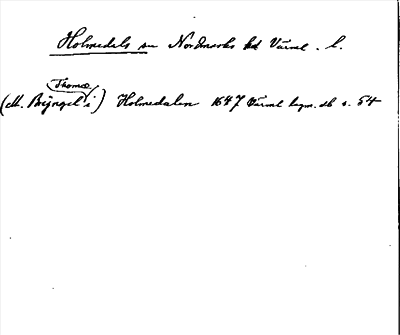 Holmedals sn Nordmarks hd Värml. l.
Thomæ
(M. Bryngel i) Holmedalen 1647 Värml legm. db s. 54